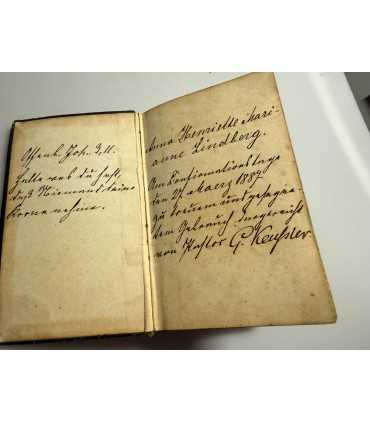 Offenb. Joh. 3,11.
Halte was du hast,
daß Niemand deine
Krone nehme.
Anna Henriette Mari-
anne Lindberg.
Am Konfirmationstage
den 27 Maerz 1887.
zu treuem und gesegne-
tem Gebrauch
von Pastor G. Keußler.